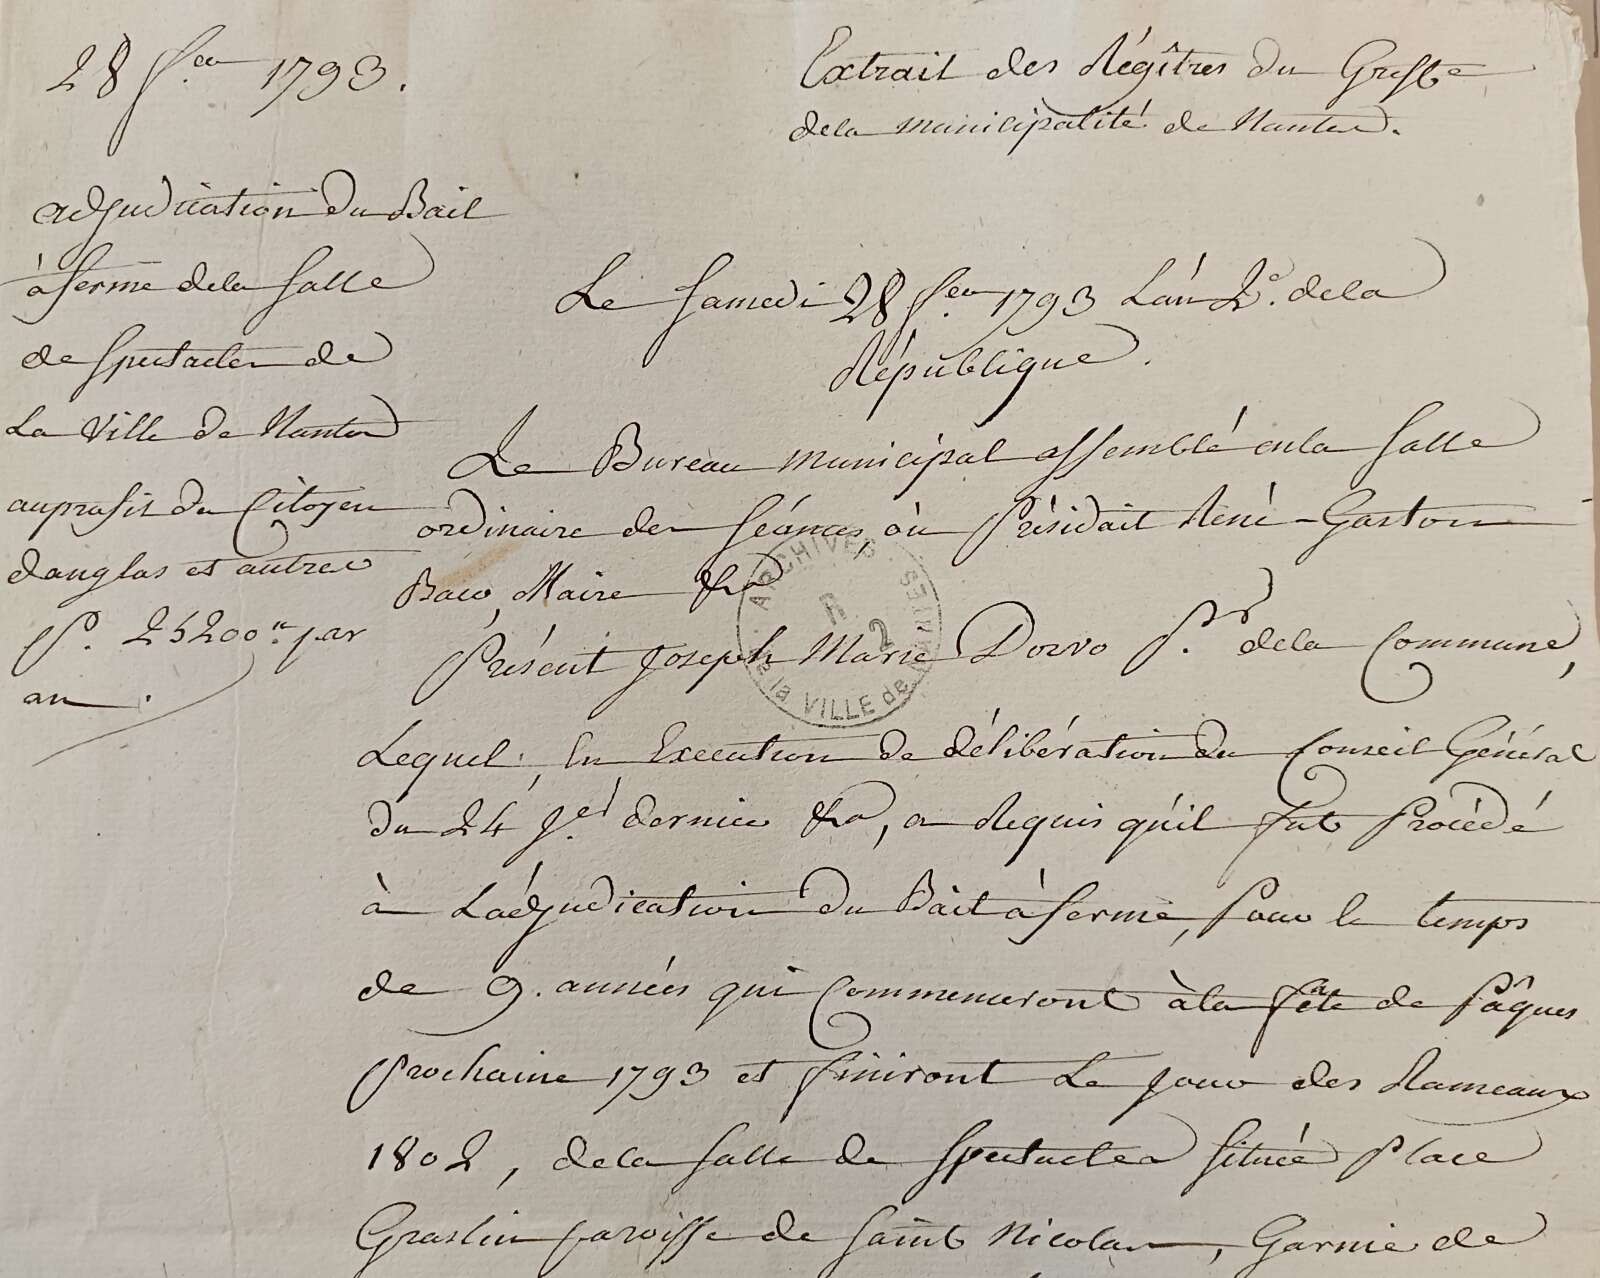 28 f.er 1793.
Extrait des Régîtres du Greffe
dela municipalité de Nantes.
adjudication du Bail
à ferme dela salle
de spectacles de
La Ville de Nantes
au profit du Citoyen
danglas et autres
p. 25200tt par
an.
Le samedi 28 f.er 1793 L'an 2e. dela
République.
Le Bureau municipal assemblé en la salle
ordinaire des séances, où Présidait René-Gaston
Baco, Maire &a
Présent Joseph Marie Dorvo Pr. dela Commune,
Lequel, En Execution de délibération du Conseil Général
du 24 J.er dernier &a, a Requis qu'il fut Procédé
à L'adjudication du Bail à ferme, Pour le temps
de 9. années qui Commenceront à la fête de Pâques
Prochaine 1793 et finiront Le jour des Rameaux
1802, dela salle de spectacles située Place
Graslin paroisse de saint Nicolas, Garnie de
ARCHIVES de la VILLE de NANTES
R 2